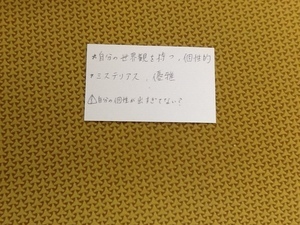 ★自分の世界観を持つ、個性的
★ミステリアス、優雅
⚠自分の個性が出すぎてない?